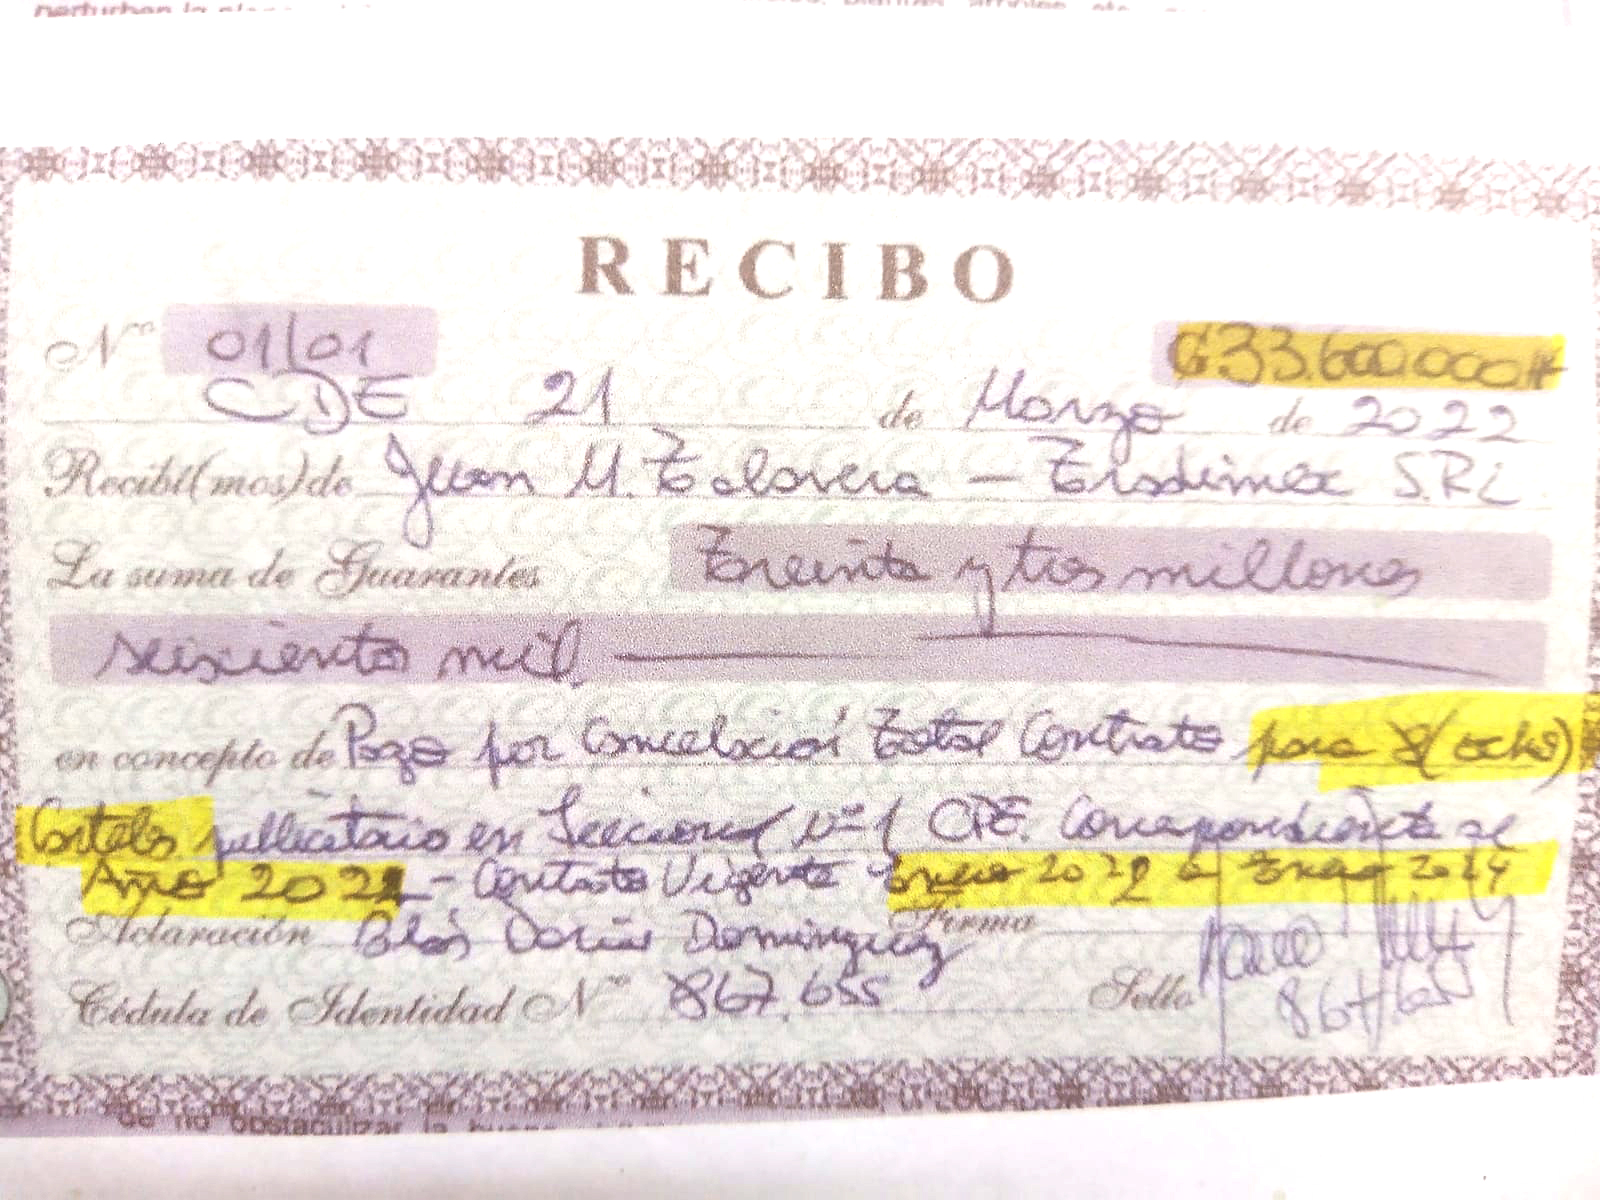 perturban la
RECIBO
Nro 01/01 G 33.600.000.#
CDE 21 de Marzo de 2022
Recibí(mos) de Juan M. Talavera - Tradimex S.R.L
La suma de Guaraníes Treinta y tres millones
seiscientos mil
en concepto de Pago por Cancelación Total Contrato para 8 (ocho)
Carteles publicitario en Seccional Nº 1 CDE. Correspondiente al
Año 2022 - Contrato Vigente Enero 2022 a Enero 2024
Aclaración Blás Darío Domínguez Firma
Cédula de Identidad Nro 867.655 Sello 867.655
de no obstaculizar la